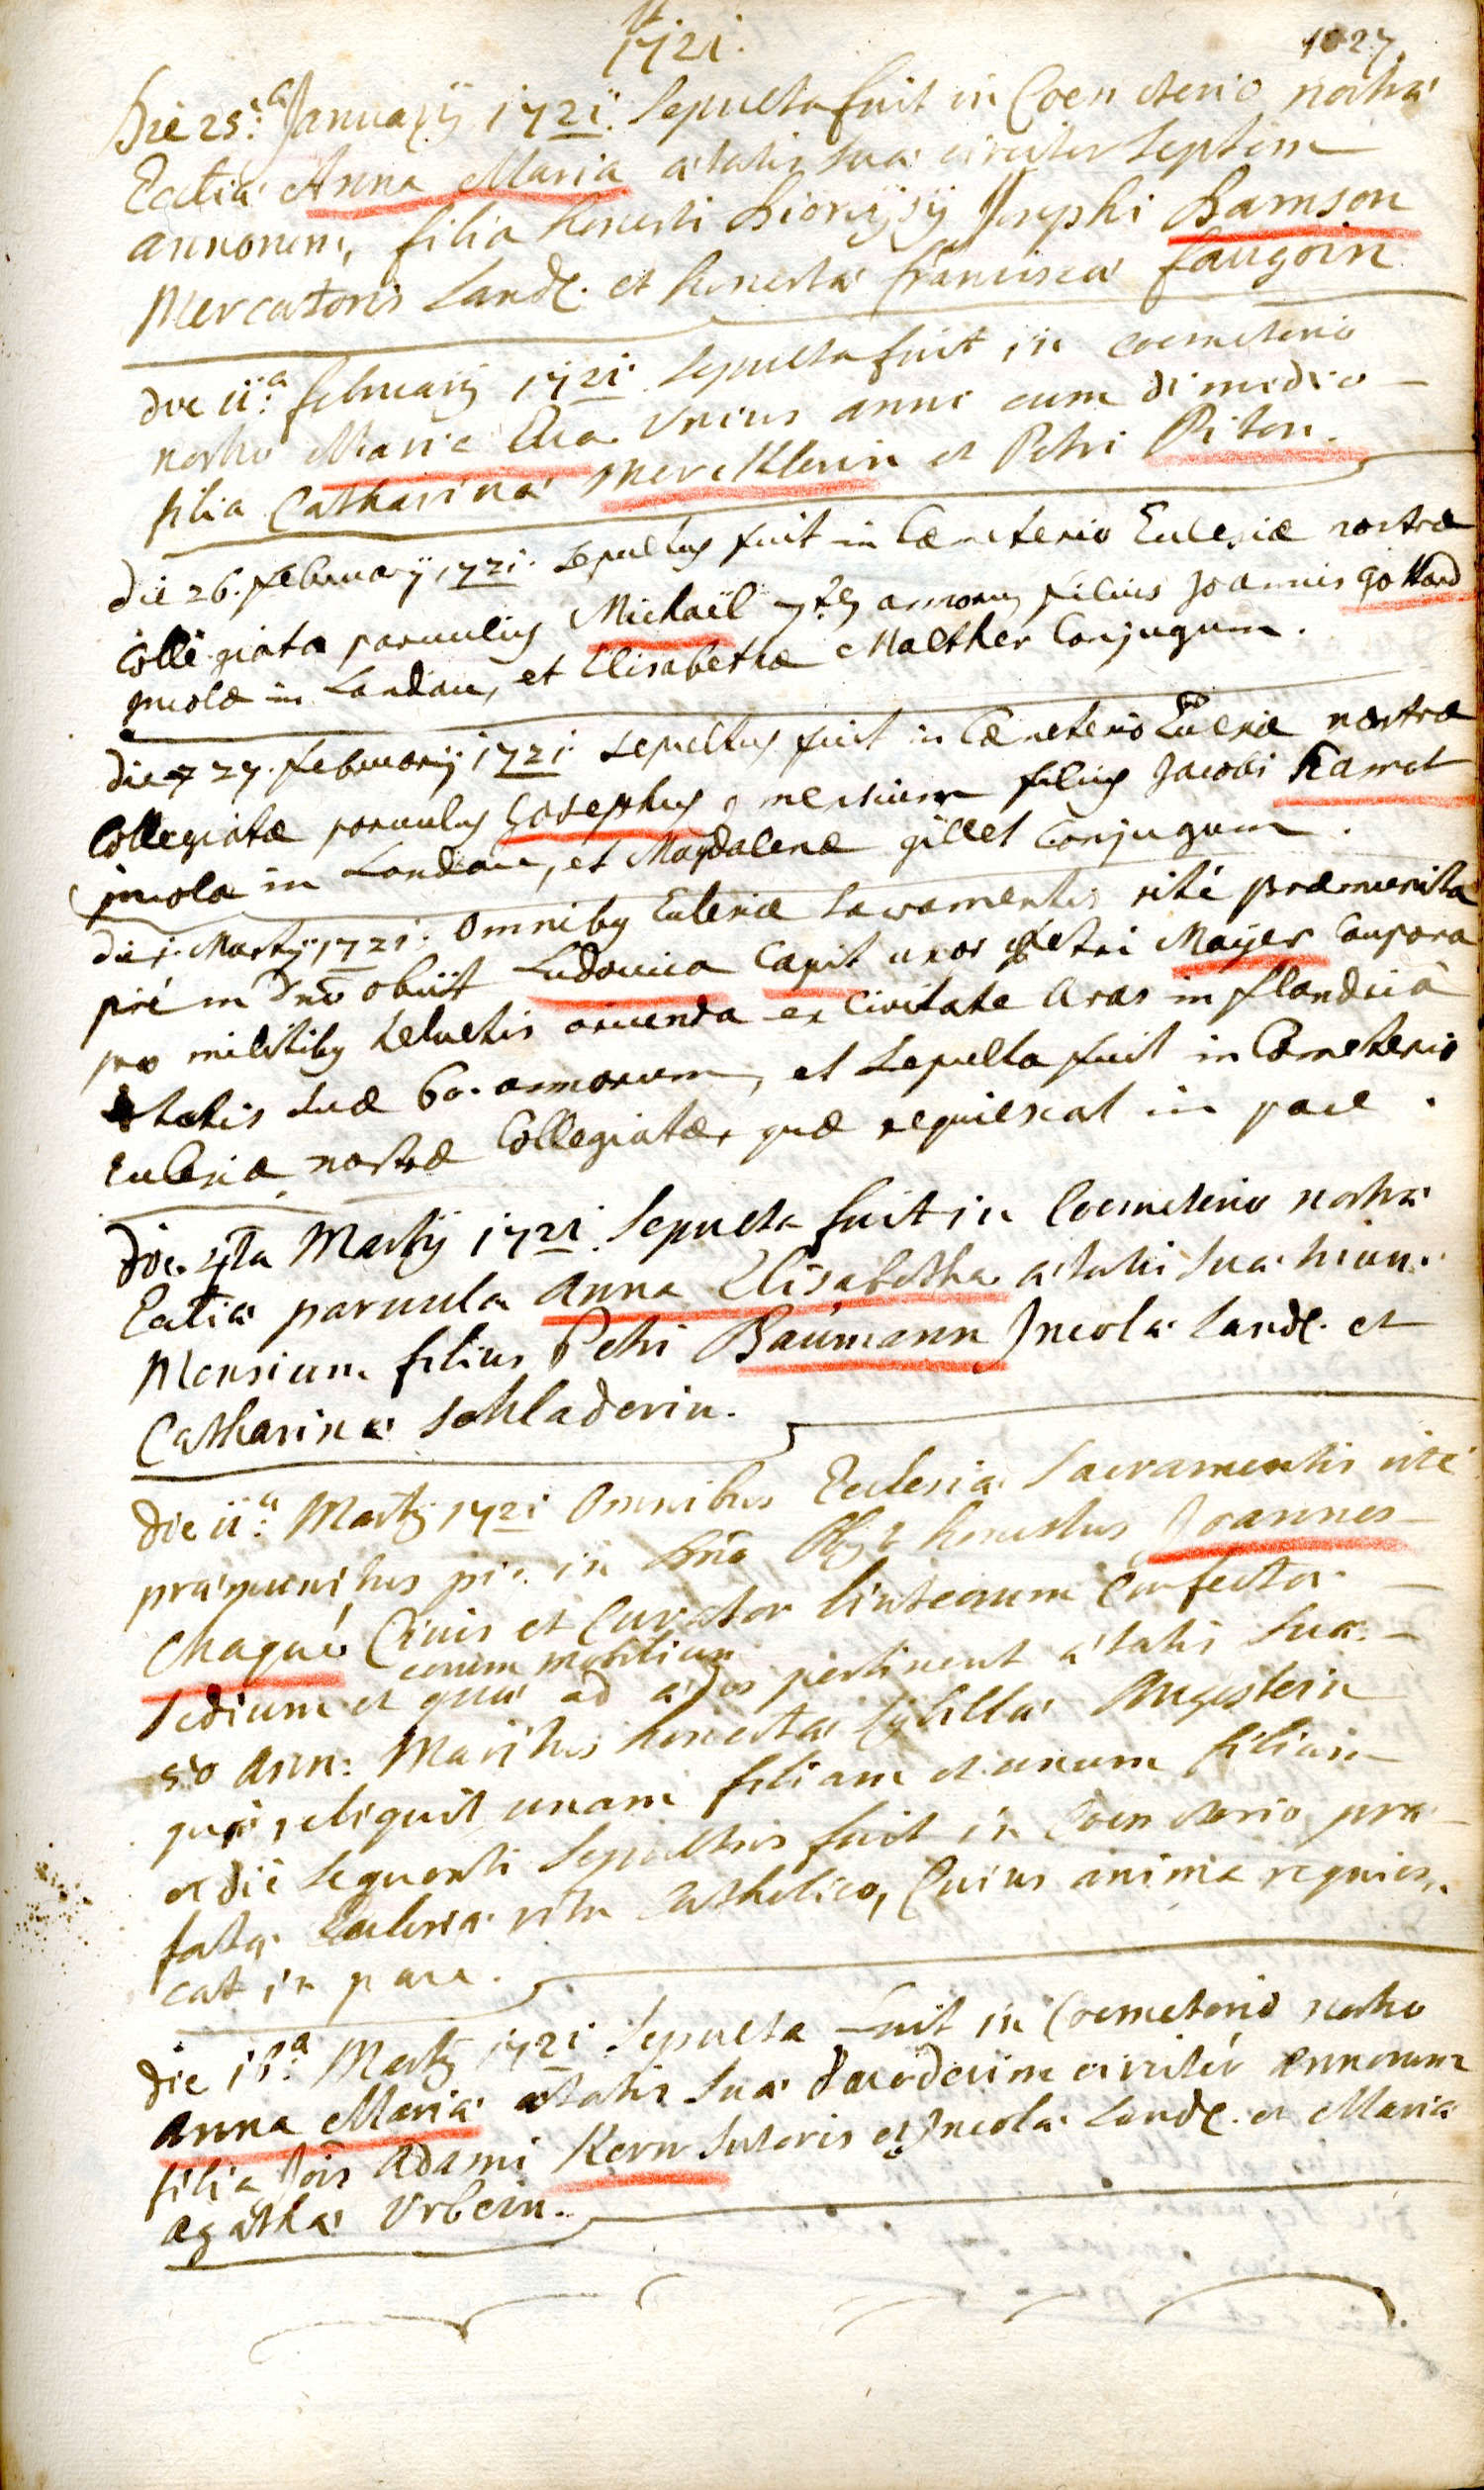 1721.
1027
Die 25.a Januarij 1721. Sepulta fuit in Coemeterio nostrae
Ecctiae Anna Maria aetatis suae circiter Septem
annorum, filia honesti Dionijsij Josephi Samson
Mercatoris Land. et honestae franciscae faugoin
die 11.a februarij 1721. Sepulta fuit in coemeterio
nostro Maria Eva Unius anni cum dimedio
filia Catharinae Mercklerin et Petri Piton.
die 26. februarij 1721. Sepultus fuit in Coemeterio Ecclesiae nostrae
Collegiatae parvulus Michaël annorum filius Joannis gotthard
incolae in Landau, et Elisabethae Malther Conjugum.
die 27. februarij 1721. Sepultus fuit in Coemeterio Ecclesiae nostrae
Collegiatae parvulus Josephus mensium filius Jacobi Kamet
incola in Landau, et Magdalenae gillet Conjugum.
die 1. Martij 1721. Omnibus Ecclesiae Sacramentis rité praemunita
pié in Dno obiit Ludovica Capit uxor Petri Maÿer Caupona
pro militibus helvetis oriunda ex Civitate Aras in flandriâ
aetatis suae 60. annorum, et Sepulta fuit in Coemeterio
Ecclesiae nostrae Collegiatae, quae requiescat in pace.
die 4ta Martij 1721. Sepulta fuit in Coemeterio nostrae
Ecctiae parvula Anna Elisabetha aetatis suae trium
Mensium filius Petri Baúmann Incolae Land. et
Catharinae Schladerin.
die 11.a Martij 1721 Omnibus Ecclesiae Sacramentis rité
praemunitus pié in Dno Obijt honestus Joannes
Chaqué Civis et Curator linteorum Confector
eorum mobilium
Sedium et quae ad aedes pertinent aetatis suae
50 ann: Maritus honestae Sybillae Angstein
qui reliquit unam filiam et unum filium
et die sequenti Sepultus fuit in Coemeterio prae
fatae Ecclesiae ritu Catholico, Cuius anima requies,,
cat in pace.
die 15.a Martij 1721 Sepulta fuit in Coemeterio nostro
Anna Maria aetatis suae duodecim circiter annorum
filia Jois Adami Kern Sutoris et Incolae Land. et Maria
Agathae Urbein.